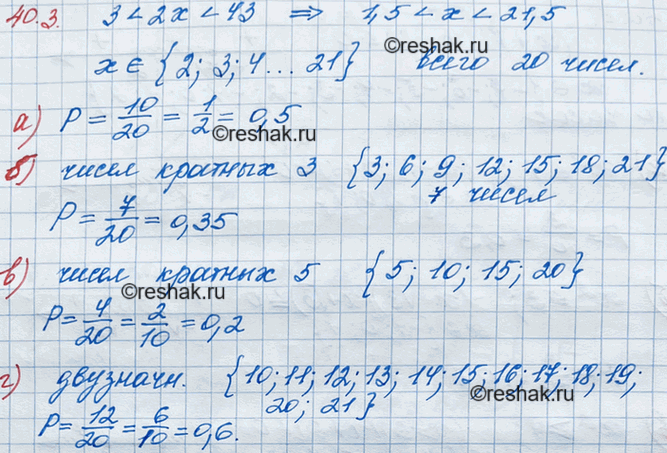 40.3. 3 < 2x < 43 ⇒ 1,5 < x < 21,5
x ∈ {2; 3; 4 ... 21} всего 20 чисел.
©reshak.ru
а) P = 10/20 = 1/2 = 0,5
©reshak.ru
б) чисел кратных 3 {3; 6; 9; 12; 15; 18; 21}
7 чисел
P = 7/20 = 0,35
в) чисел кратных 5 {5; 10; 15; 20}
©reshak.ru
P = 4/20 = 2/10 = 0,2
г) двузначн. {10; 11; 12; 13; 14; 15; 16; 17; 18; 19;
20; 21}
©reshak.ru
P = 12/20 = 6/10 = 0,6.